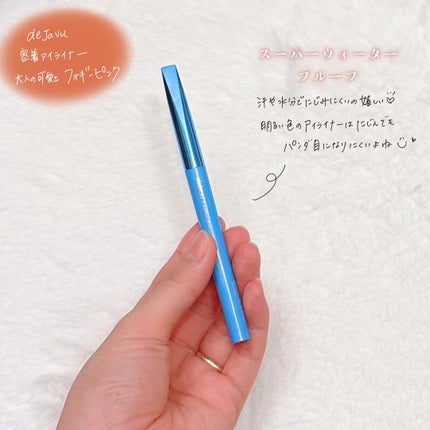 dejavu
密着アイライナー
大人の可愛さ フォギーピンク
スーパーウォーター
プルーフ
汗や水分でにじみにくいの嬉しい♡
明るい色のアイライナーはにじんでも
パンダ目になりにくいよね